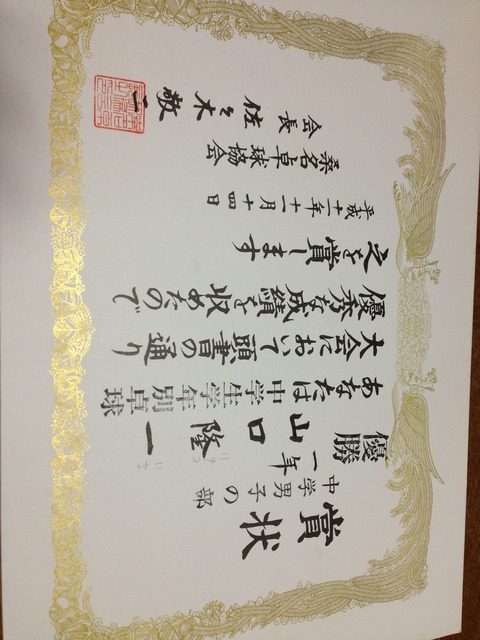 賞状
中学男子の部
一年
優勝
山口隆一
りゅう いち
あなたは中学生学年別卓球
大会において頭書の通り
優秀な成績を収めたので
之を賞します
平成十一年十一月十四日
桑名卓球協会
会長 佐々木敬一